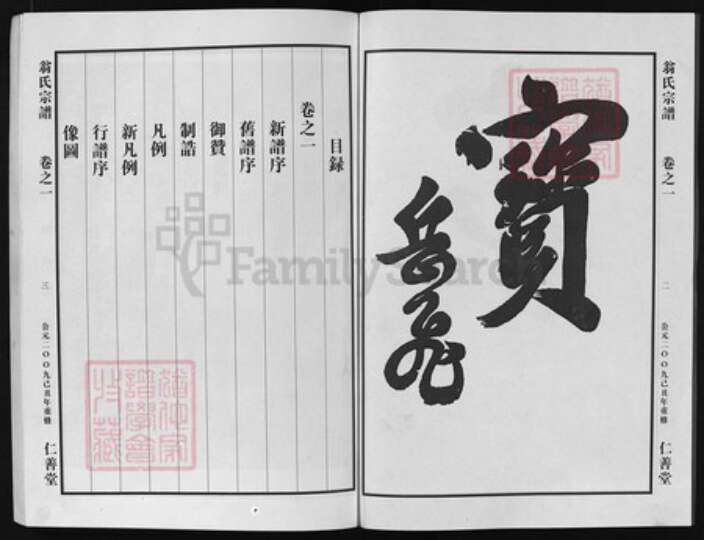 翁氏宗譜 卷之一
二
公元二00九己丑年重修
仁善堂
寶
岳飛
目録
卷之一
新譜序
舊譜序
御贊
制誥
凡例
新凡例
行譜序
像圖
翁氏宗譜 卷之一
三
公元二00九己丑年重修
仁善堂
FamilySearch